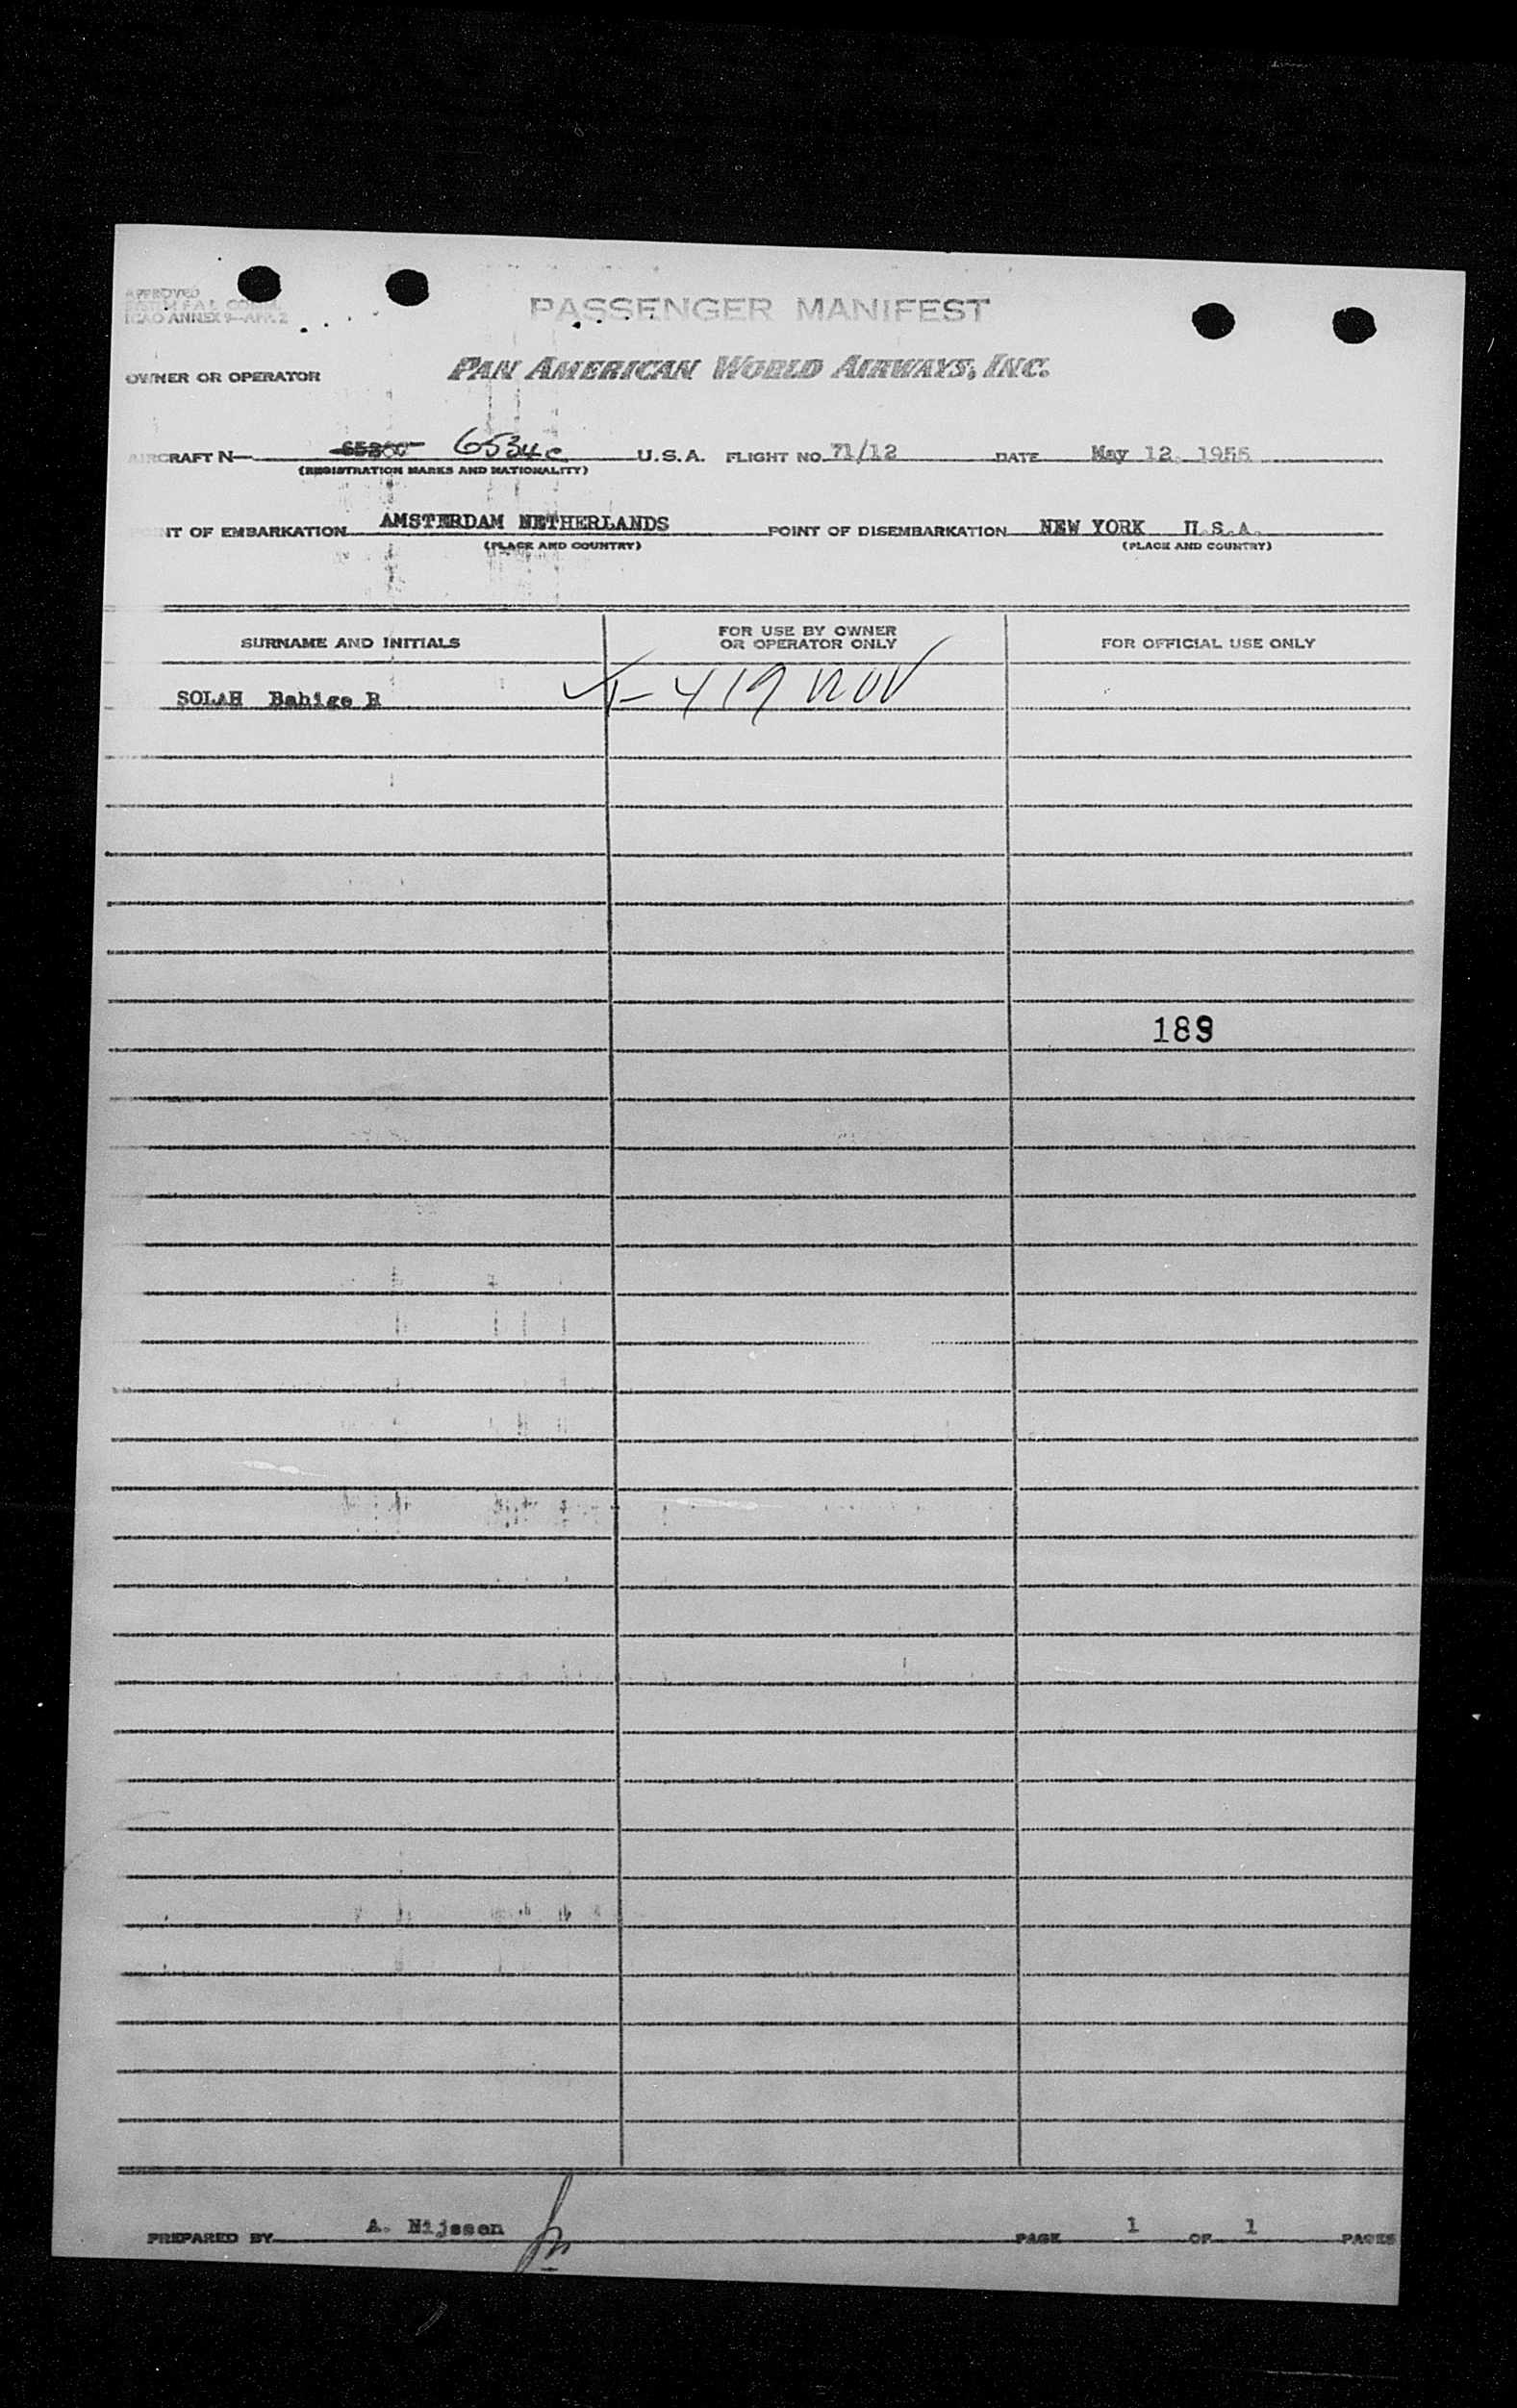 APPROVED
ICAO ANNEX 9—APP. 2
PASSENGER MANIFEST
OWNER OR OPERATOR PAN AMERICAN WORLD AIRWAYS, INC.
AIRCRAFT N— 6534c U.S.A. FLIGHT NO. 71/12 DATE May 12 1955
(REGISTRATION MARKS AND NATIONALITY)
POINT OF EMBARKATION AMSTERDAM NETHERLANDS POINT OF DISEMBARKATION NEW YORK U.S.A.
(PLACE AND COUNTRY) (PLACE AND COUNTRY)
SURNAME AND INITIALS FOR USE BY OWNER OR OPERATOR ONLY FOR OFFICIAL USE ONLY
SOLAH Bahige R 419
PREPARED BY A. Nijssen PAGE 1 OF 1 PAGES